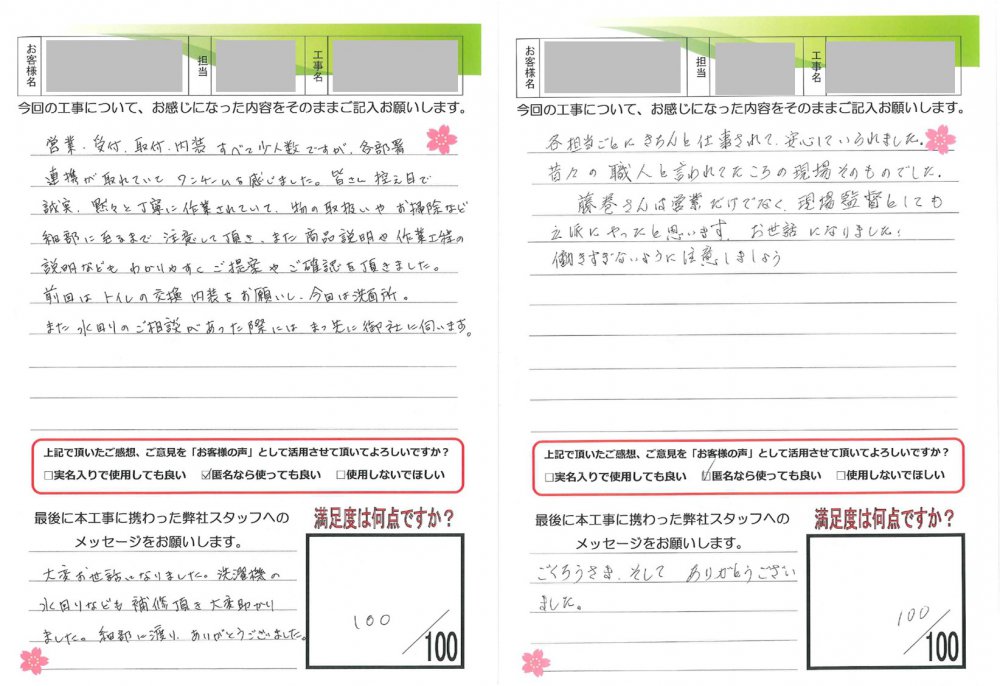 お客様名
担当
工事名
今回の工事について、お感じになった内容をそのままご記入お願いします。
営業、受付、取付、内装 すべて少人数ですが、各部署
連携が取れていて ワンチームを感じました。皆さん控え目で
誠実、黙々と丁寧に作業されていて、物の取扱いや お掃除など
細部に至るまで 注意して頂き、また 商品説明や 作業工程の
説明なども わかりやすく ご提案や ご確認を頂きました。
前回は トイレの交換 内装をお願いし、今回は洗面所。
また 水回りのご相談があった際には まっ先に御社に伺います。
上記で頂いたご感想、ご意見を「お客様の声」として活用させて頂いてよろしいですか？
□実名入りで使用しても良い ☑匿名なら使っても良い □使用しないでほしい
最後に本工事に携わった弊社スタッフへの
メッセージをお願いします。
大変お世話になりました。洗濯機の
水回りなども 補修頂き 大変助かり
ました。細部に渡り、ありがとうございました。
満足度は何点ですか？
100/100
お客様名
担当
工事名
今回の工事について、お感じになった内容をそのままご記入お願いします。
各担当ごとに きちんと仕事されて、安心していられました。
昔々の 職人と言われてたころの現場そのものでした。
藤巻さんは営業だけでなく、現場監督としても
立派にやったと思います。お世話になりました！
働きすぎないように注意しましょう
上記で頂いたご感想、ご意見を「お客様の声」として活用させて頂いてよろしいですか？
□実名入りで使用しても良い ☑匿名なら使っても良い □使用しないでほしい
最後に本工事に携わった弊社スタッフへの
メッセージをお願いします。
ごくろうさま、そして ありがとうござい
ました。
満足度は何点ですか？
100/100